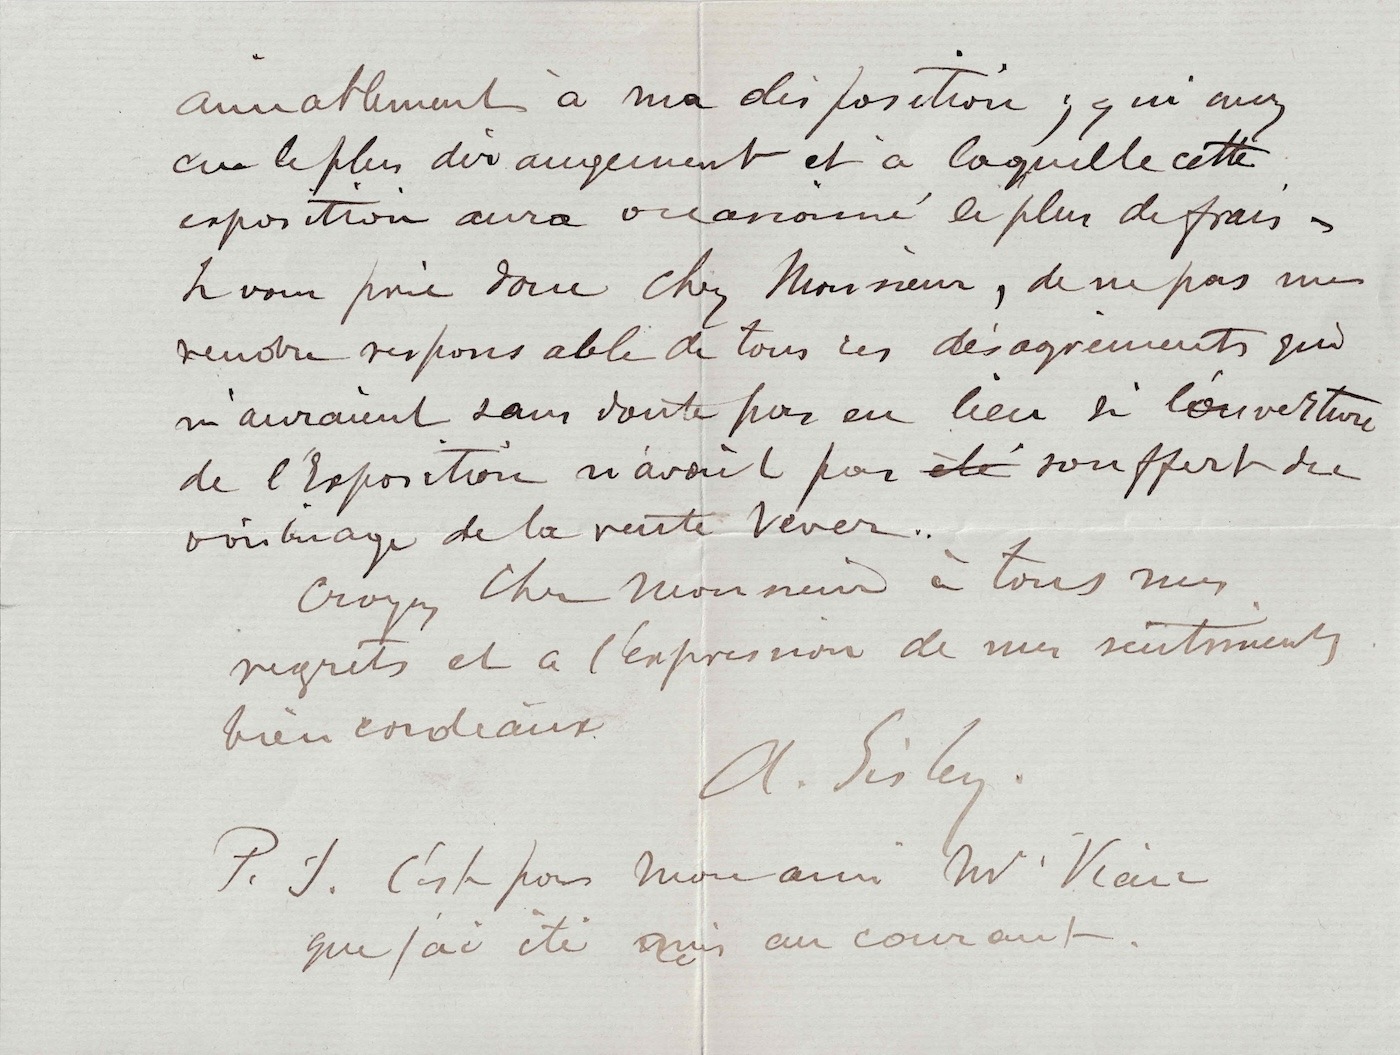 aimablement à ma disposition, qui avez
eu le plus dérangement et a laquelle cette
exposition aura occasionné le plus de frais.
Je vous prie donc cher Monsieur, de ne pas me
rendre responsable de tous ces désagréments qui
n'auraient sans doute pas eu lieu si l'ouverture
de l'Exposition n'avait pas été souffert du
voisinage de la vente Vever..
Croyez Cher Monsieur à tous mes
regrets et a l'expression de mes sentiments
bien cordiaux.
A. Sisley.
P. S. C'est par mon ami Mr Viau
que j'ai été mis au courant.